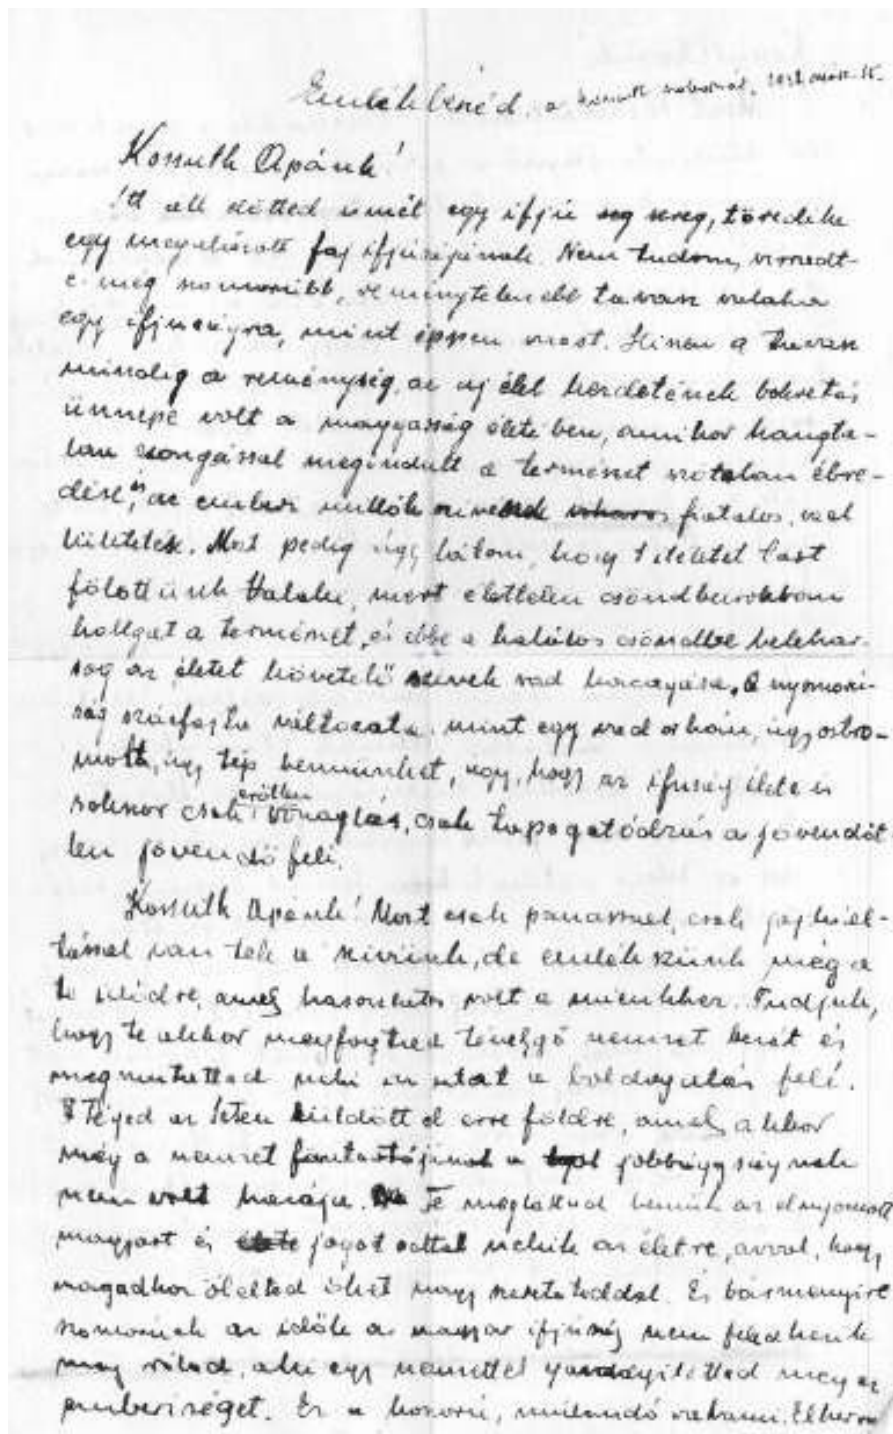 Emlékbeszéd, a Kossuth szobornál, márc. 15.
Kossuth Apánk!
Itt áll előtted ismét egy ifjú sereg, töredéke
egy megalázott faj ifjúságának. Nem tudom, virradt-
e még szomorúbb, reménytelenebb tavasz valaha
egy ifjúságra, mint éppen most. Hiszen a tavasz
mindig a reménység, az új élet kezdetének bokrétás
ünnepe volt a magyarság életében, amikor hangta-
lan zsongással megindult a természet szótalan ébre-
dése, az emberi
Most pedig úgy látom, hogy ítéletet tart
fölöttünk Valaki, mert élettelen csöndburokban
hallgat a természet, és ebbe a halálos csöndbe belehar-
sog az életet követelő szívek vad kacagása. A nyomorú-
ság százfajta változata, mint egy vad orkán, úgy ostro-
molt, úgy tép bennünket, úgy, hogy az ifjuság élete is
sokszor csak erőtlen vonaglás, csak tapogatódzás a jövendőt-
len jövendő felé.
Kossuth Apánk! Most csak panasszal, csak jajkiál-
tással van tele a szívünk, de emlékszünk még a
te idődre, amely hasonlatos volt a mienkhez. Tudjuk,
hogy te akkor megfogtad tévelygő nemzet kezét és
megmutattad neki az utat a boldogulás felé.
Téged az Isten küldött el erre földre, amely akkor
még a nemzet fönntartójának a jobbágyságnak
nem volt hazája. Te megláttad bennük az elnyomott
magyart és jogot adtál nekik az életre, azzal, hogy
magadhoz ölelted őket nagy szeretettel. És bármennyire
szomorúak az idők a magyar ifjúság nem feledkezik
meg rólad, aki egy nemzettel gazdagítottad meg az
emberiséget. Ez a koszorú, mulandó